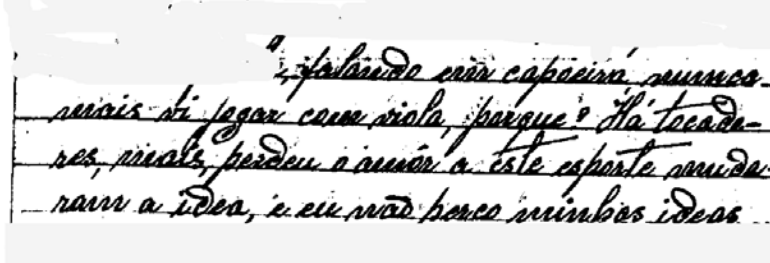 ", falando em capoeira, nunca
mais vi jogar com viola, porque? Há tocado-
res, mais, perdeu o amôr a este esporte muda-
ram a idea, e eu não perco minhas ideas